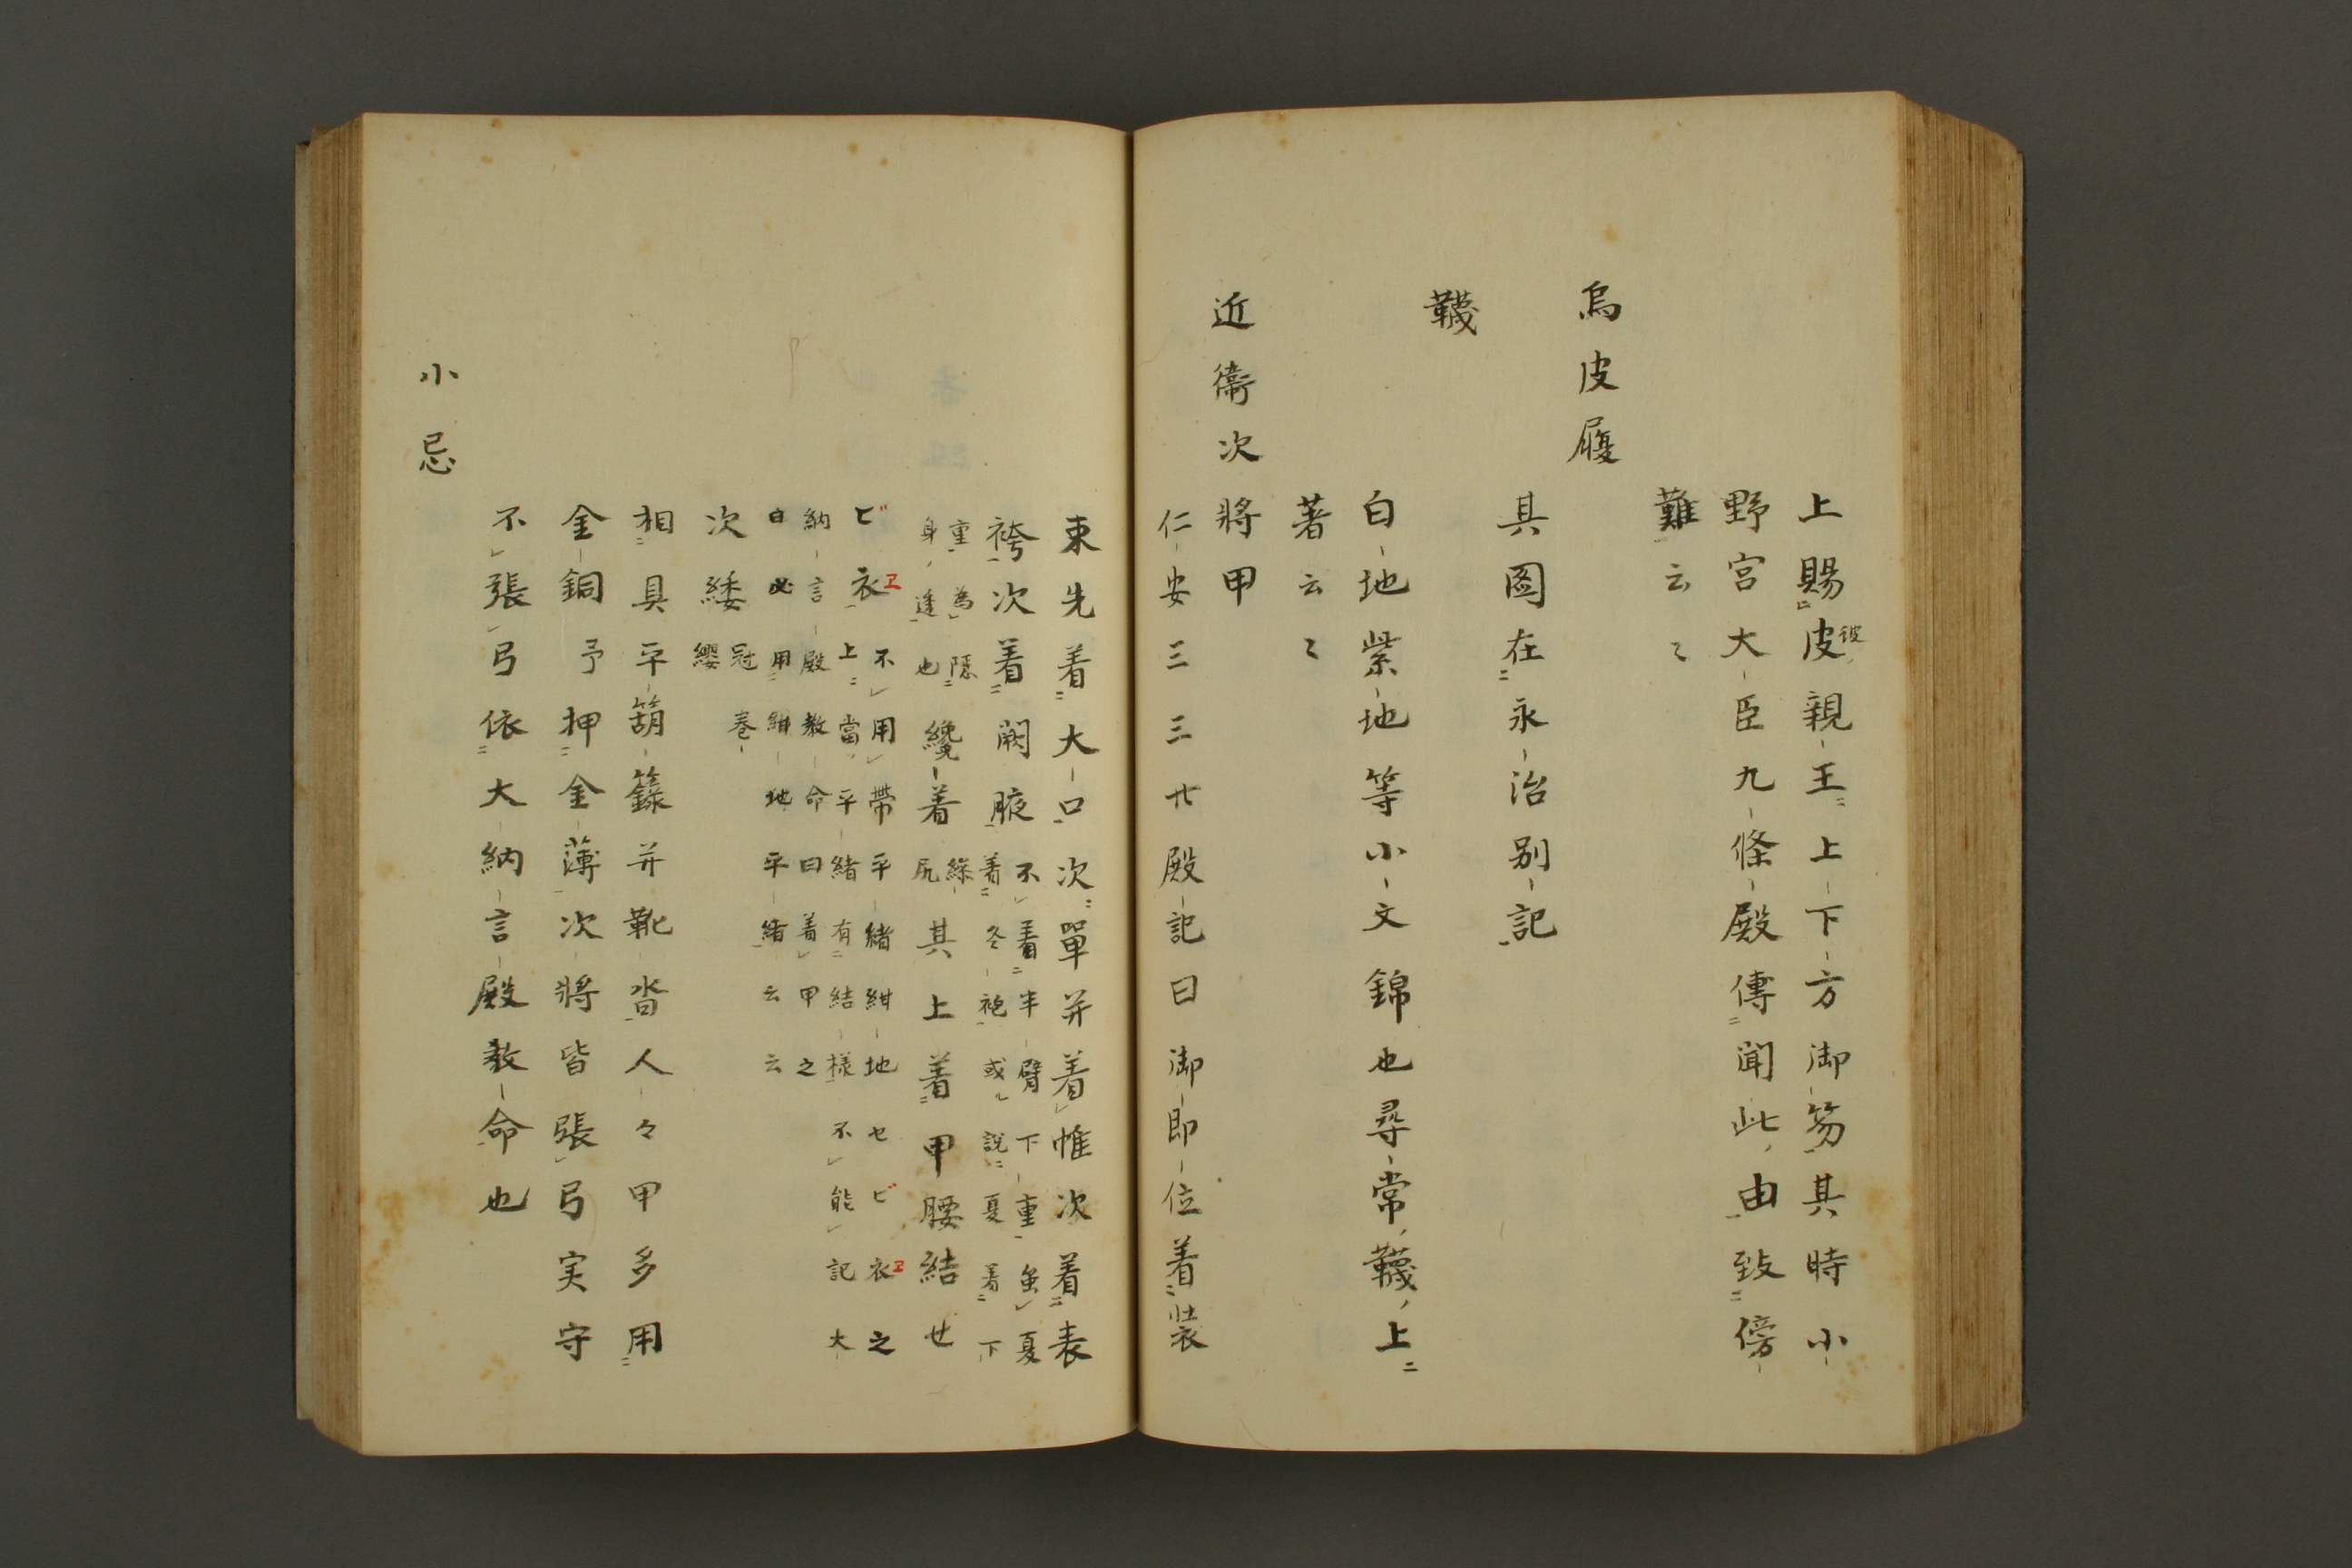 上賜皮彼親王上下方御笏其時小
野宮大臣九條殿傳聞此由致傍
難云々
烏皮履
其圖在永治別記
韈
白地紫地等小文錦也尋常韈上
著云々
近衛次將甲
仁安三三廿殿記曰御即位着装
束先着大口次單并着帷次着表
袴次着闕腋
不着半臂下重夏
着冬袍或説夏着下
重為隠
身逢也
纔着
緂
尻
其上着甲腰結せ
ビ衣ヱ
不用帶平緒紺地セビ衣ヱ之
上當平緒有結様不能記大
納言殿教命曰着甲之
日必用紺地平緒云云
次緌
冠巻
纓
相具平箶籙并靴沓人々甲多用
金銅予押金薄次將皆張弓実守
不張弓依大納言殿教命也
小忌